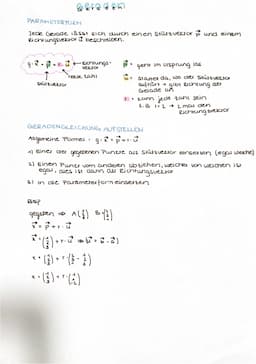 Geraden
PARAMETERFORM
Jede Gerade lässt sich durch einen Stützvektor p und einem
Richtungsvektor u beschreiben.
g: x = p + r · u
Richtungs-
vektor
reele Zahl
Stützvektor
p = geht im Ursprung los
u = startet da, wo der Stützvektor
aufhört + gibt Richtung der
Gerade an
r = kann jede Zahl sein
z.B. r = 2 → 2 mal den
Richtungsvektor
GERADENGLEICHUNG AUFSTELLEN
Allgemeine Formel: g: x = p + r · u
1) einer der gegebenen Punkte als Stützvektor einsetzen (egal welche)
2) einen Punkt vom anderen abziehen, welcher von welchen ist
egal, dies ist dann der Richtungsvektor
3) in die Parameterform einsetzen
Bsp
gegeben ⇒ A B
x = p + r · u